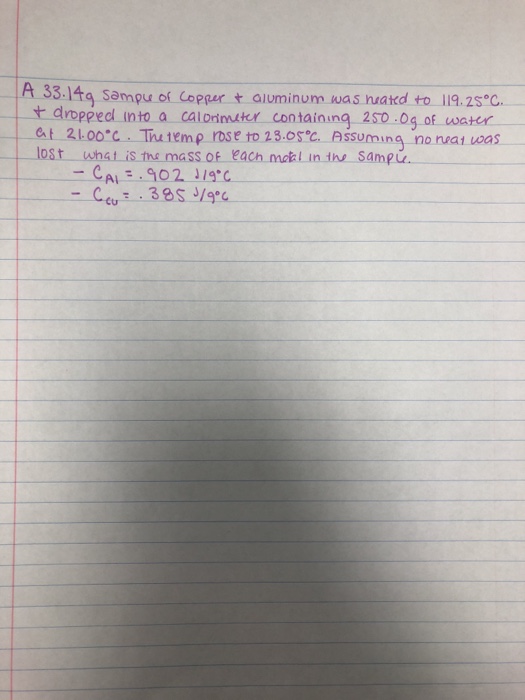 A 33.14g sample of Copper + aluminum was heated to 119.25°C.
+ dropped into a calorimeter containing 250.0g of water
at 21.00°C. The temp rose to 23.05°C. Assuming no heat was
lost what is the mass of each metal in the sample.
- CAl = .902 J/g°C
- Ccu = .385 J/g°C